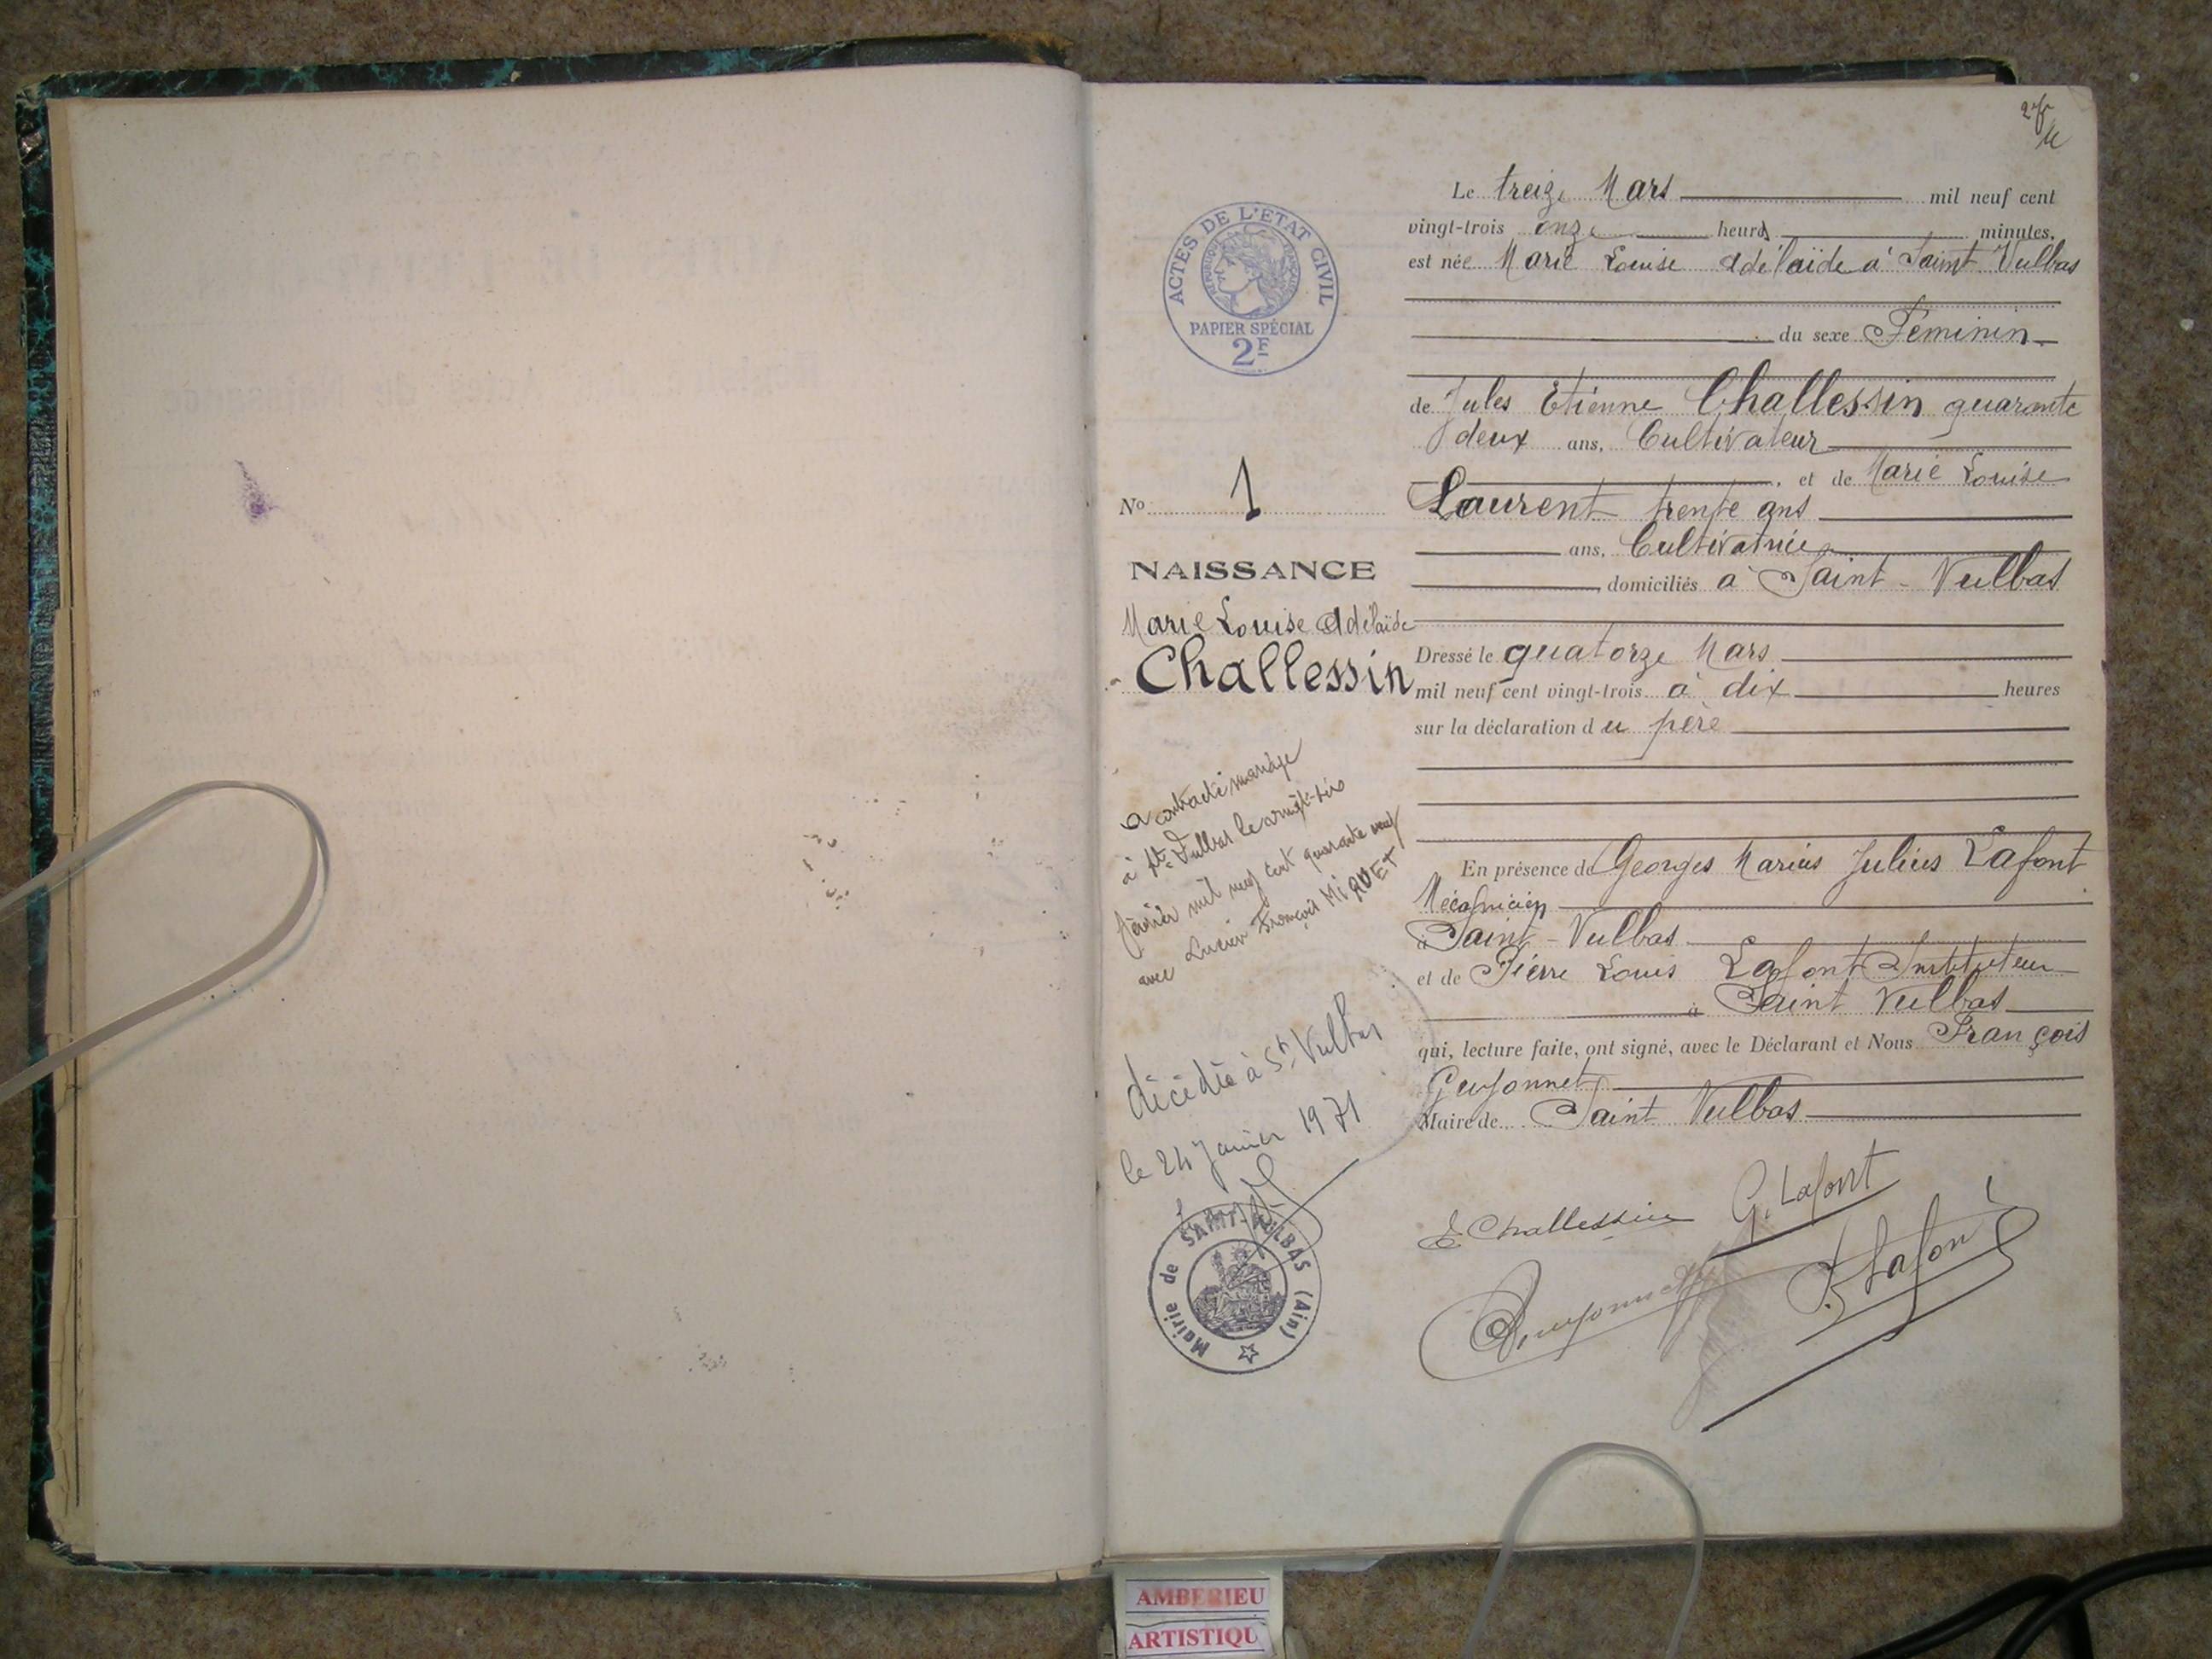 Le treize Mars mil neuf cent
vingt-trois onze heures minutes,
est née Marie Louise Adélaïde à Saint Vulbas
du sexe Féminin
de Jules Etienne Challessin quarante
deux ans, Cultivateur
, et de Marie Louise
Laurent trente ans
ans, Cultivatrice
domiciliés à Saint-Vulbas
Dressé le quatorze Mars
mil neuf cent vingt-trois à dix heures
sur la déclaration du père
En présence de Georges Marius Julius Lafont
Mécanicien
à Saint-Vulbas
et de Pierre Louis Lafont Instituteur
à Saint Vulbas
qui, lecture faite, ont signé, avec le Déclarant et Nous François
Guyonnet
Maire de Saint Vulbas
E Challessin
G. Lafont
Guyonnet
P. Lafont
ACTES DE L'ETAT CIVIL
REPUBLIQUE FRANÇAISE
PAPIER SPÉCIAL
2F
No 1
NAISSANCE
Marie Louise Adélaïde
Challessin
a contracté mariage
à St. Vulbas le
février mil neuf cent quarante neuf
avec Lucien François MIQUET
décédée à St. Vulbas
le 24 Janvier 1971
Mairie de SAINT-VULBAS (Ain)
AMBERIEU
ARTISTIQU